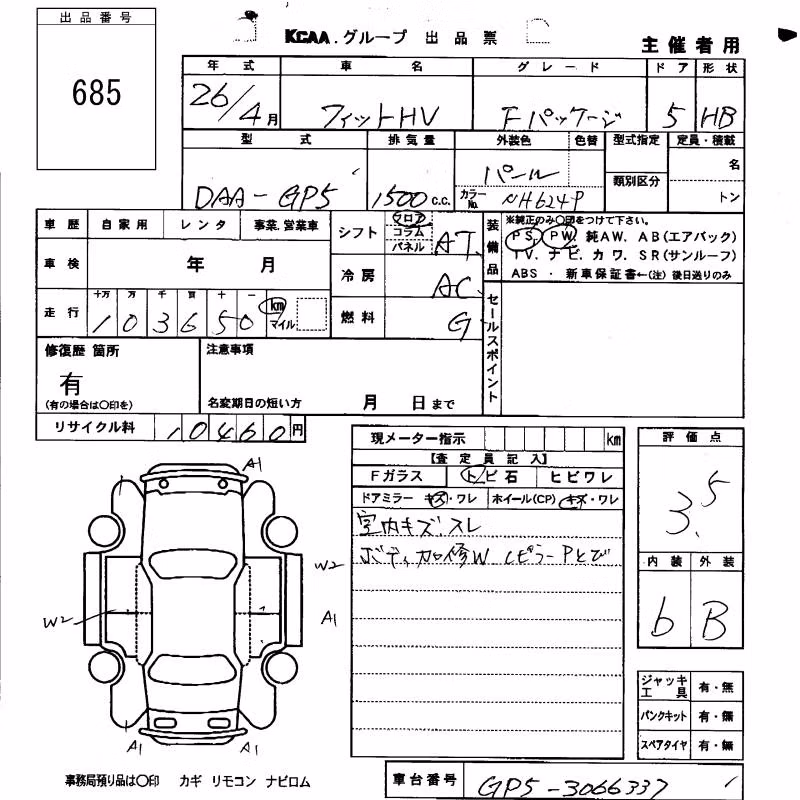 出品番号
685
KCAA.グループ 出品票
主催者用
年式 車名 グレード ドア 形状
26/4月 フィットHV Fパッケージ 5 HB
型式 排気量 外装色 色替 型式指定 定員・積載
DAA-GP5 1500c.c. パール 名
カラーNo. NH624P 類別区分 トン
車歴 自家用 レンタ 事業.営業車
シフト フロア コラム パネル AT
装備品
※純正のみ○印をつけて下さい。
PS, PW, 純AW, AB(エアバック)
TV, ナビ, カワ, SR(サンルーフ)
ABS ・ 新車保証書←(注) 後日送りのみ
車検 年 月
冷房 AC
走行 十万 万 千 百 十 一 km マイル
103650
燃料 G
セールスポイント
修復歴 箇所
有
(有の場合は○印を)
注意事項
名変期日の短い方 月 日まで
リサイクル料 10460円
現メーター指示 km
【査定員記入】
Fガラス トビ石 ヒビワレ
ドアミラー キズ・ワレ ホイール(CP) キズ・ワレ
室内キズ.スレ
ボディ加修W LピラーPとび
評価点
3.5
内装 外装
b B
A1
W2
W2
A1
A1
A1
ジャッキ工具 有・無
パンクキット 有・無
スペアタイヤ 有・無
事務局預り品は○印 カギ リモコン ナビロム
車台番号 GP5-3066337